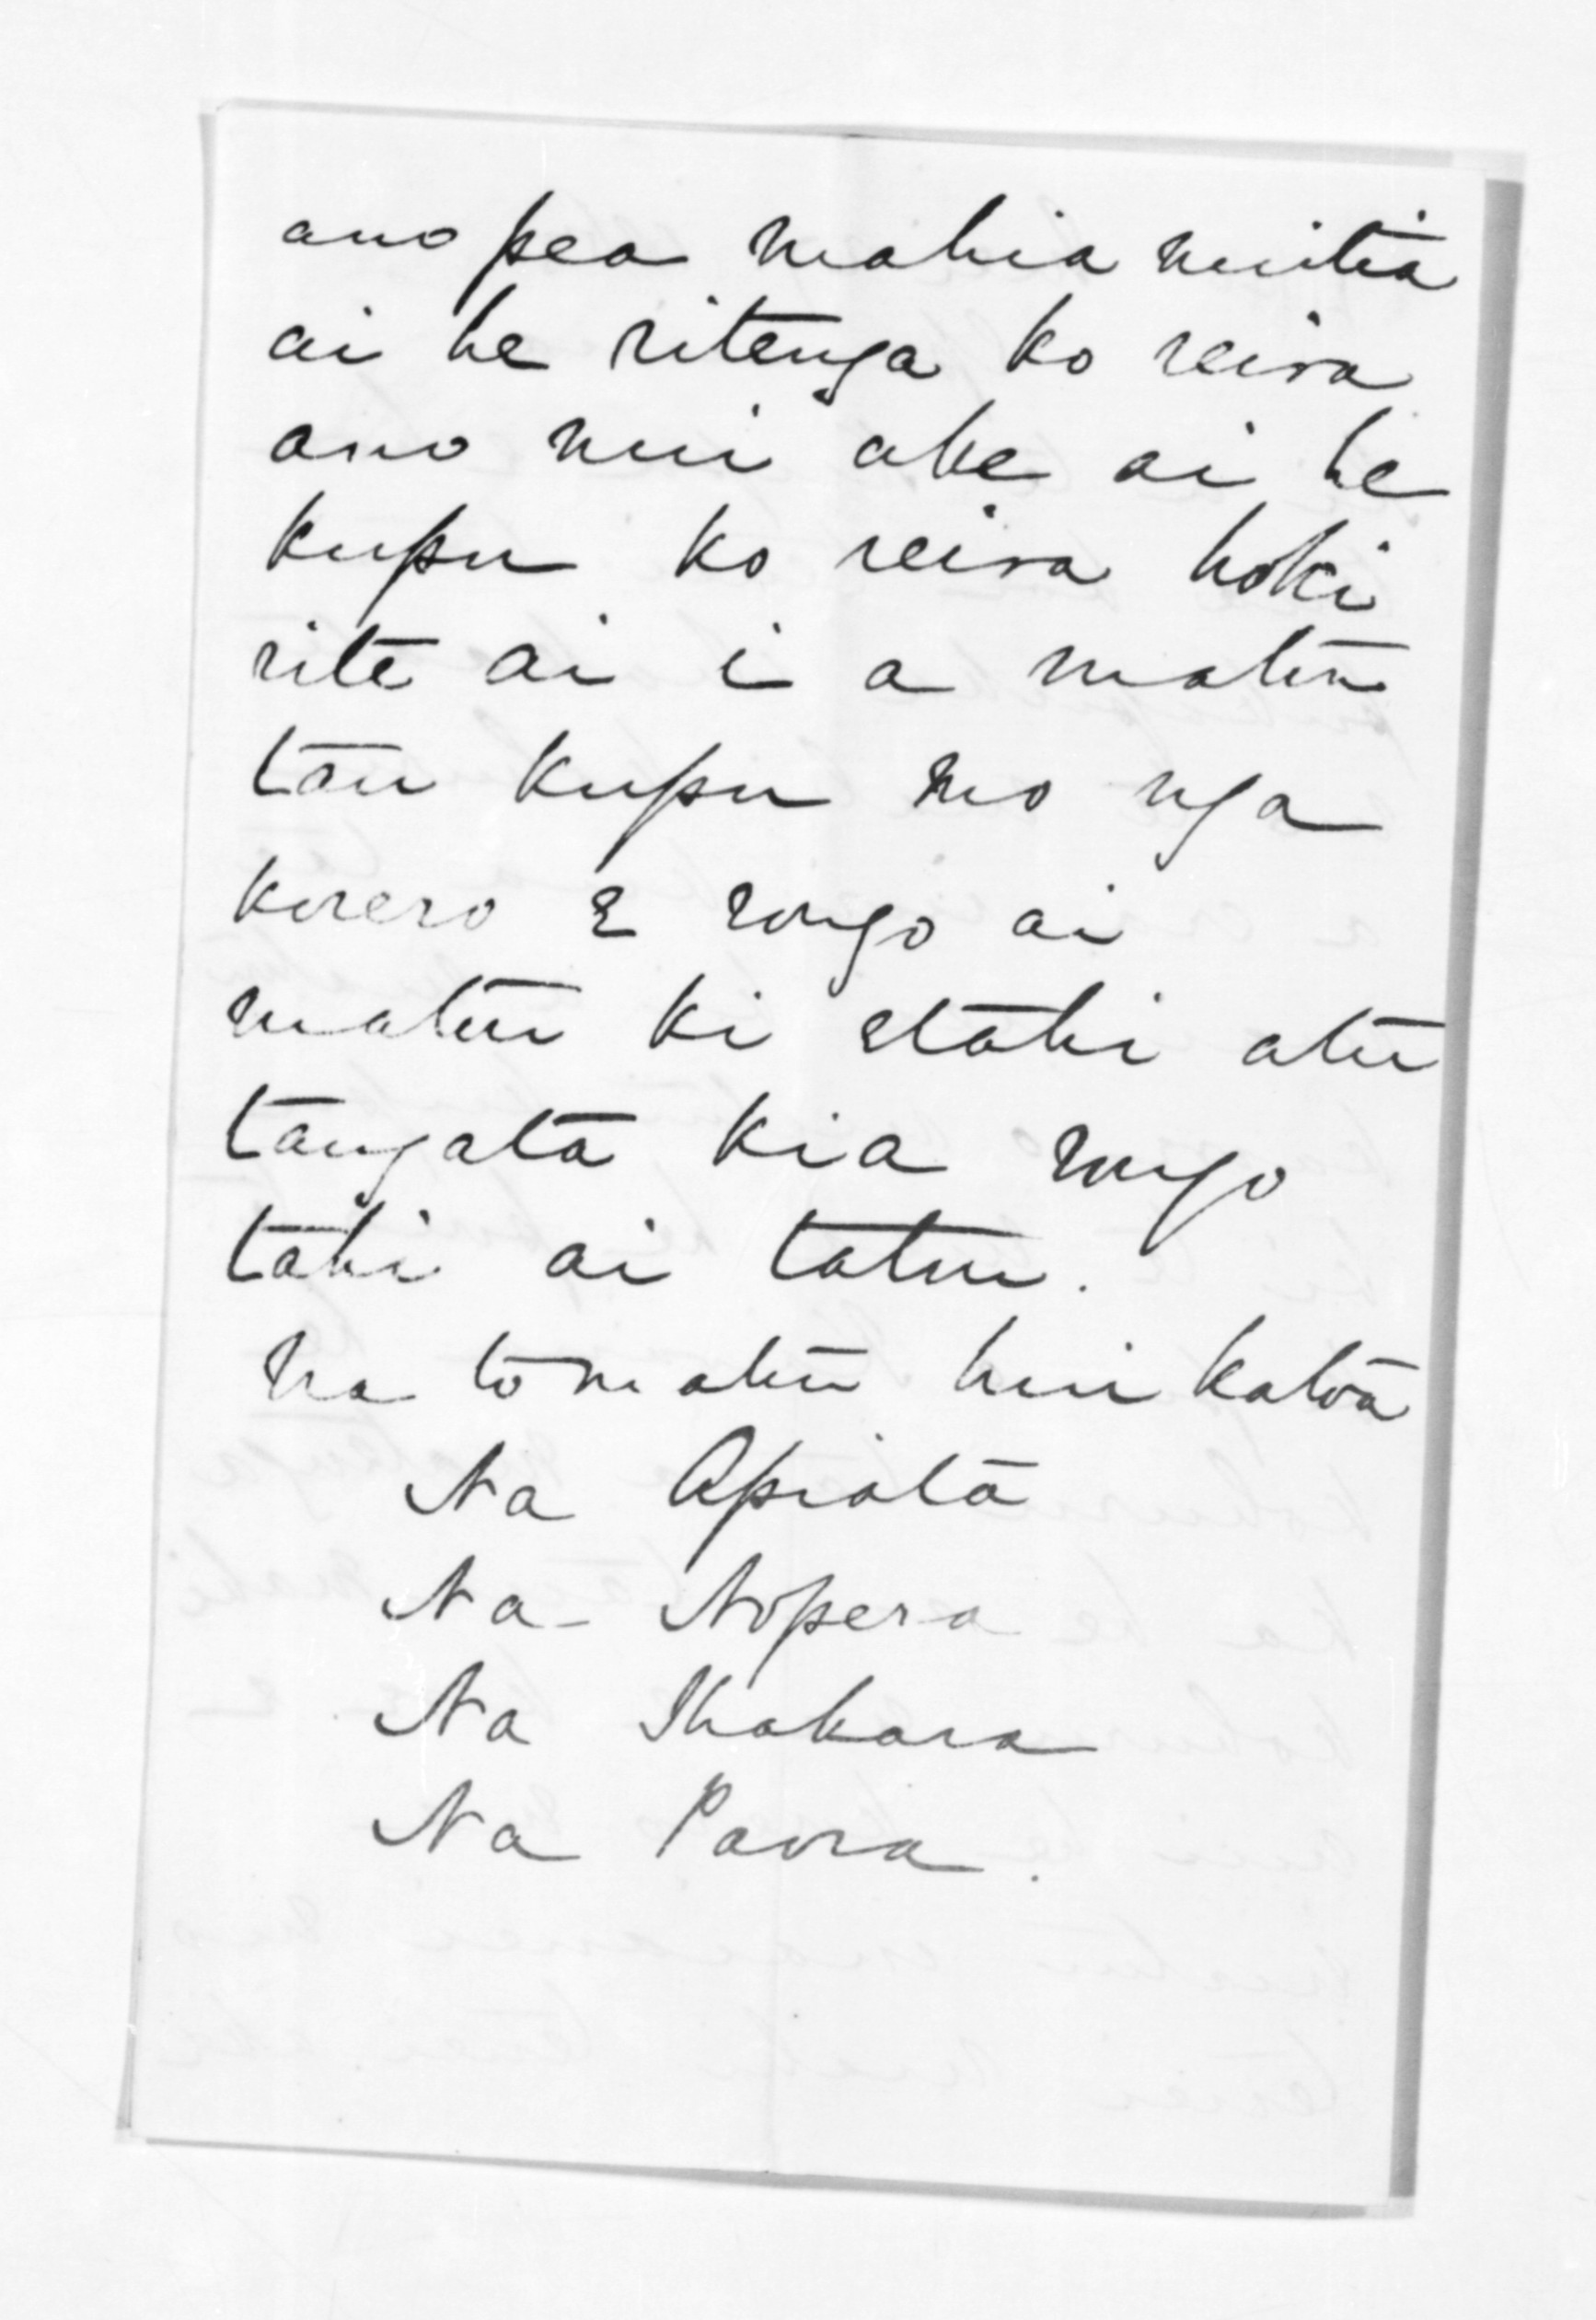 ano pea mahia nuitia
ai he ritenga ko reira
ano nui ake ai he
kupu ko reira hoki
rite ai i a matou
tau kupu mo nga
korero e rongo ai
matou ki etahi atu
tangata kia rongo
tahi ai tatou.
na to matou hui katoa
Na Apiata
Na - Nopera
Na Ihakara
Na Paora.